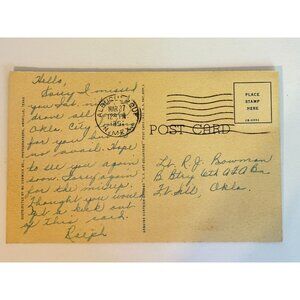 Hello,
Sorry I missed
you Sat. nite
drove all over
Okla. City
for you but
no avail. Hope
to see you again
soon. Sorry again
for the mixup.
Thought you would
get a kick out
of this card.
Ralph
ALBUQUERQUE
MAR 27
1951
N. MEX.
PLACE
STAMP
HERE
POST CARD
Lt. R. J. Bowman
B Btry 6th AFA Bn
Ft. Sill, Okla.